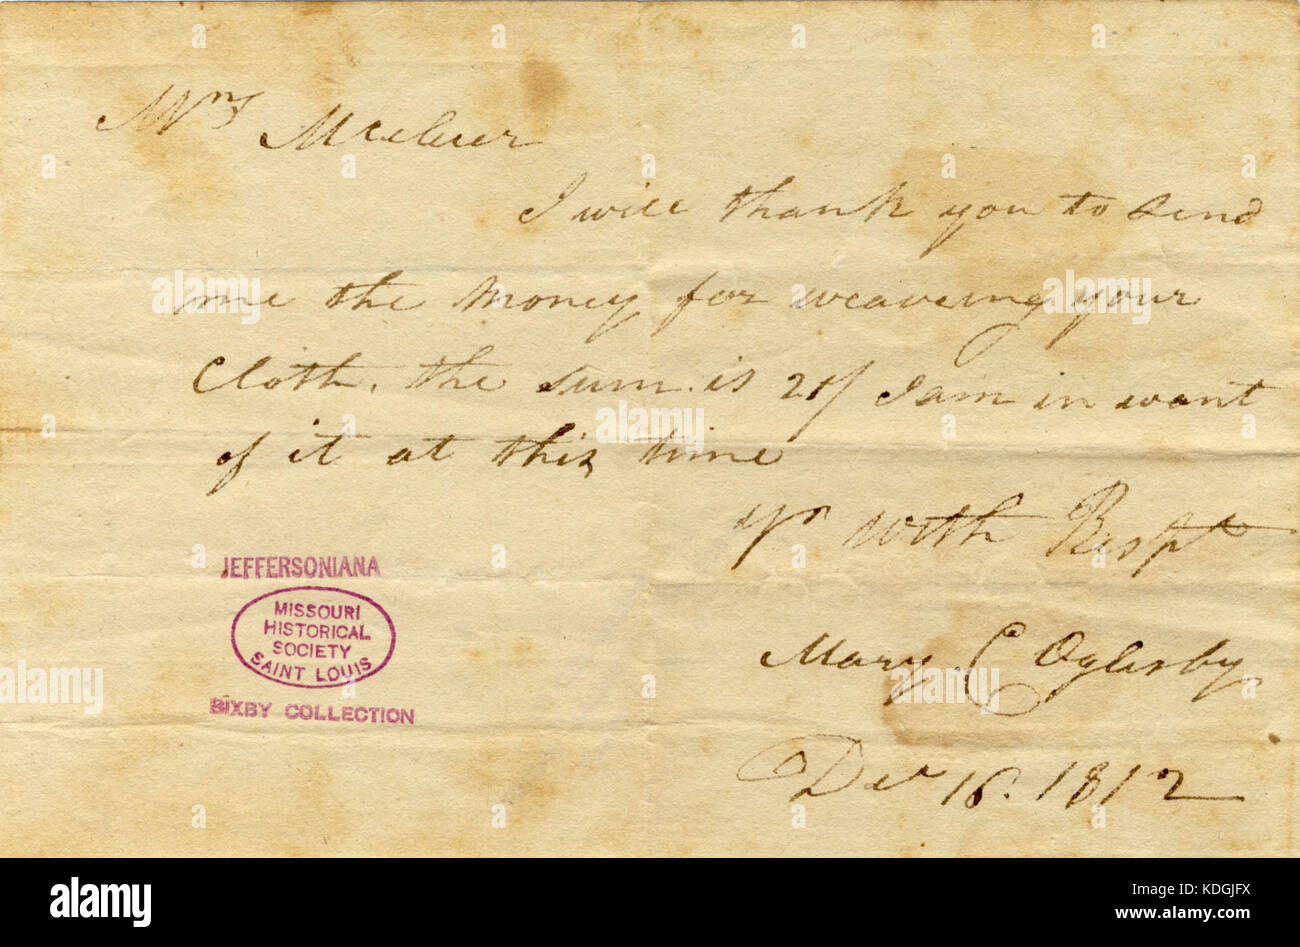 Mrs Mccluer
I will thank you to send
me the money for weaveing your
Cloth. the sum is 21/ I am in want
of it at this time
yr with Respt
Mary C Oglesby
Decr 16. 1812
JEFFERSONIANA
MISSOURI
HISTORICAL
SOCIETY
SAINT LOUIS
BIXBY COLLECTION
alamy
Image ID: KDGJFX
www.alamy.com